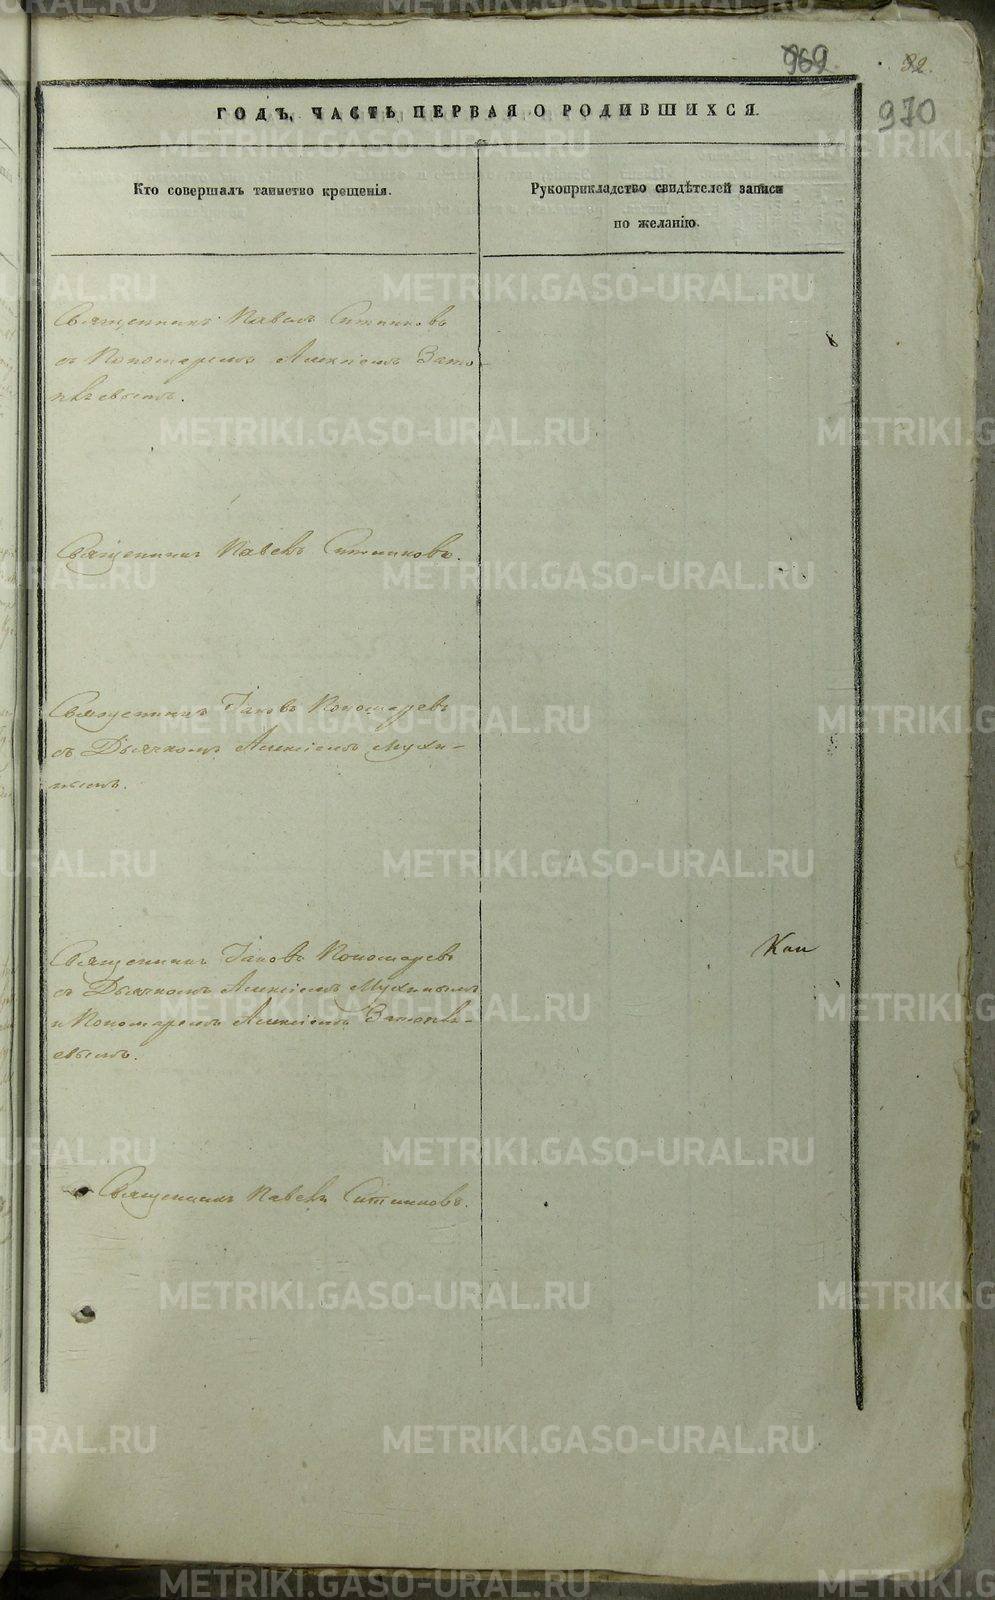 969.
82.
970
ГОДЪ, ЧАСТЬ ПЕРВАЯ О РОДИВШИХСЯ.
Кто совершалъ таинство крещенія.
Рукоприкладство свидѣтелей записи
по желанію.
Священникъ Павелъ Ситниковъ
съ Пономаремъ Алексіемъ Зато-
пляевымъ.
Священникъ Павелъ Ситниковъ.
Священникъ Іаковъ Пономаревъ
съ Дьячкомъ Алексіемъ Мухи-
нымъ.
Священникъ Іаковъ Пономаревъ
съ Дьячкомъ Алексіемъ Мухинымъ
и Пономаремъ Алексіемъ
евымъ.
Священникъ Павелъ Ситниковъ.
METRIKI.GASO-URAL.RU